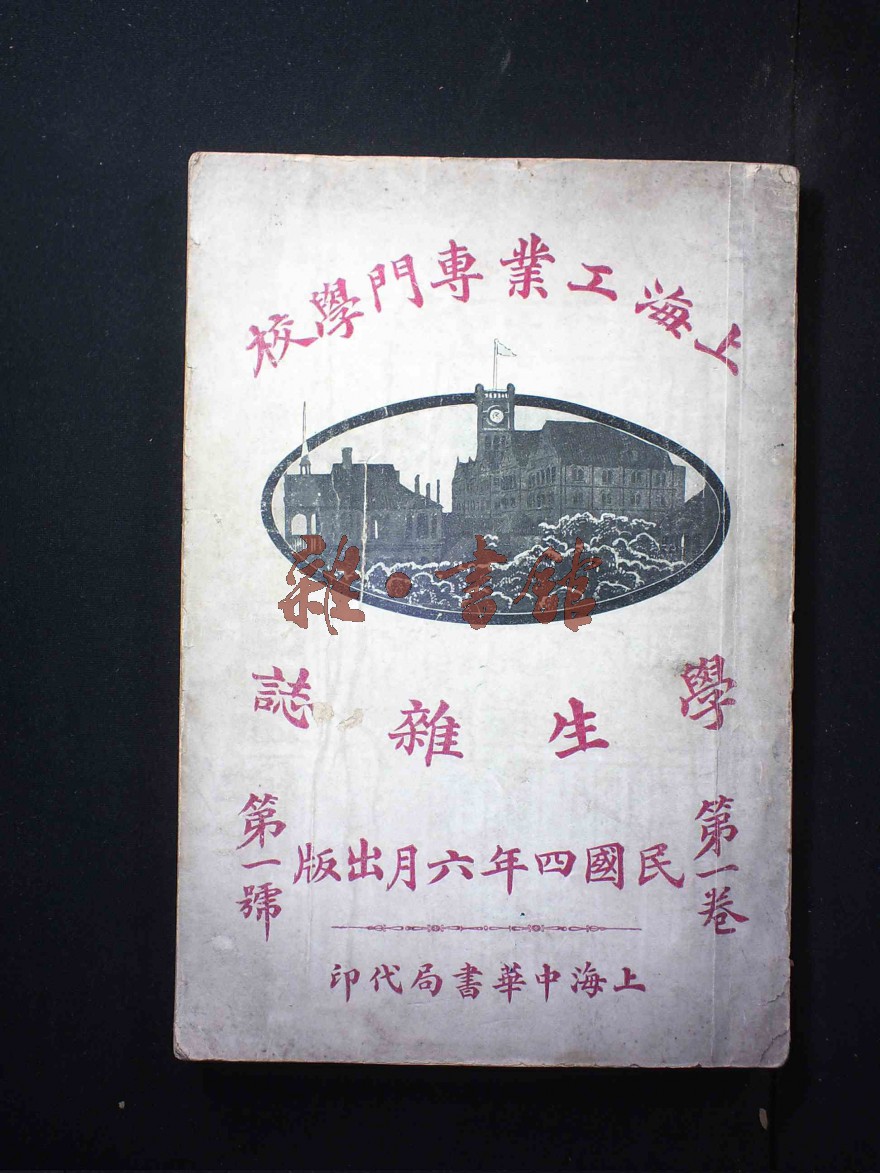 上海工業專門學校
雜·書館
學生雜誌
第一卷
民國四年六月出版
第一號
上海中華書局代印